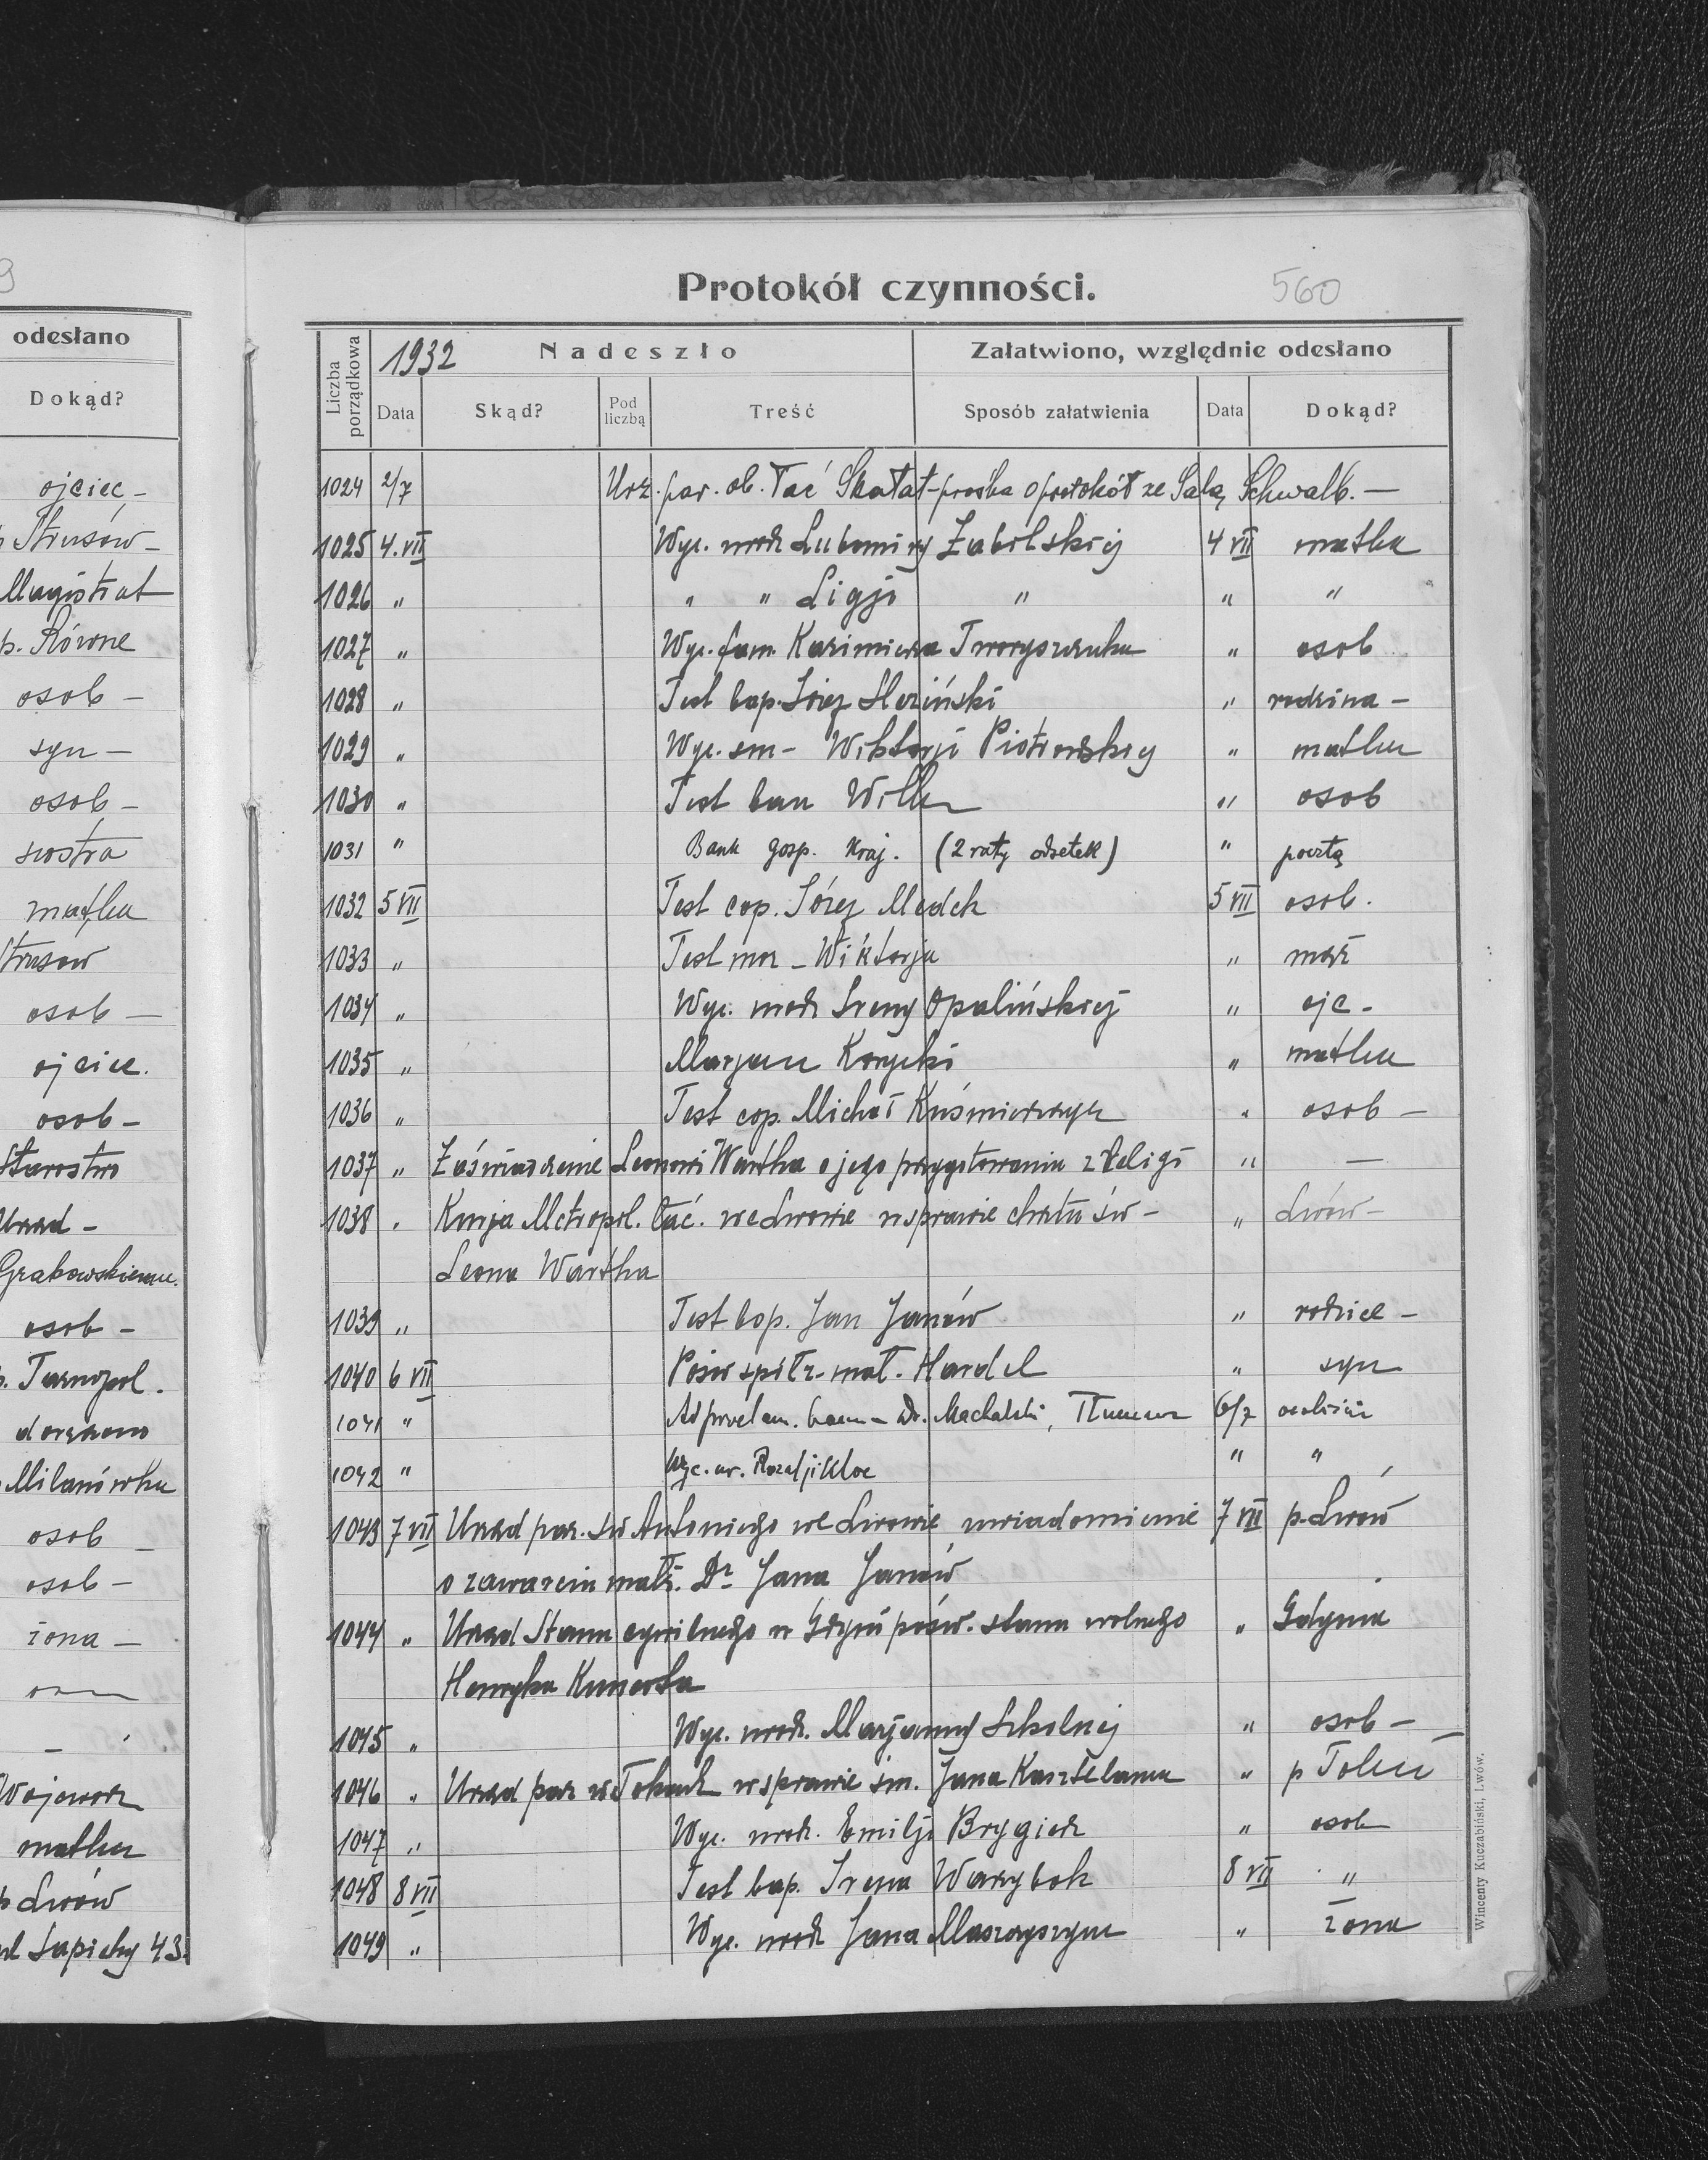 9
odesłano
Dokąd?
ojciec –
Strusów –
Magistrat
p. Równe
osob –
syn –
osob –
siostra
matka
Strusow
osob –
ojciec.
osob –
Starostwo
Urząd –
Grabowskiemu.
osob –
p. Tarnopol.
doręczono
Milanówka
osob –
osob –
żona –
Wojewodz
matka
p Lwów
Sapiehy 43.
Protokół czynności. 560
Liczba porządkowa 1932 Nadeszło Załatwiono, względnie odesłano
Data Skąd? Pod liczbą Treść Sposób załatwienia Data Dokąd?
1024 2/7 Urz. par. ob. łać Skałat – prośba o protokół ze Salą Schwalb. –
1025 4. VII Wyc. urodz Lubomiry Zabilskiej 4 VII matka
1026 " " " Ligji " " "
1027 " Wyc. fam Kazimierza " osob
1028 " Test bap. Józef " rodzina –
1029 " Wyc. sm – Wiktorji Piotrowskiej " matka
1030 " Test ban " osob
1031 " Bank gosp. Kraj. (2 raty odsetek) " pocztą
1032 5 VII Test cop. Józef 5 VII osob.
1033 " Test mor – Wiktorja " mąż
1034 " Wyc. urodz Ireny Opalińskiej " ojc –
1035 " Marjan Korycki " matka
1036 " Test cop. Michał " osob –
1037 " Zaświadczenie Leonowi Wartha o jego przygotowaniu z religi " –
1038 " Kurja Metropol. łać. we Lwowie w sprawie chrztu św – " Lwów –
Leona Wartha
1039 " Test bap. Jan Janów " rodzice –
1040 6 VII Pośw " syn
1041 " Dr. 6/7 osobiście
1042 " Wyc. ur. Rozalji Kloc " "
1043 7 VII Urząd par. św Antoniego we Lwowie uwiadomienie 7 VII p. Lwów
o zawarciu małż. Dr Jana Janów
1044 " Urząd Stanu cywilnego w Gdyni pośw. stanu wolnego " Gdynia
Henryka Kunerta
1045 " Wyc. urodz. Marjanny Szkolnej " osob –
1046 " Urząd par w sprawie śm. Jana Kasztelana "
1047 " Wyc. urodz. Emilji " osob
1048 8 VII Test bap. Irena 8 VII "
1049 " Wyc. urodz Jana " żona
Wincenty Kuczabiński, Lwów.